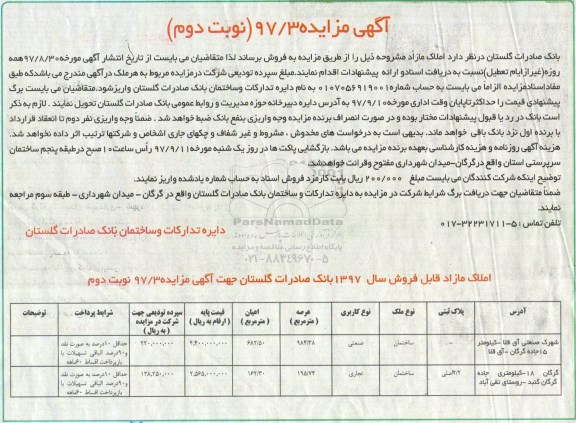 آگهی مزایده ۹۷/۳ (نوبت دوم)
بانک صادرات گلستان درنظر دارد املاک مازاد مشروحه ذیل را از طریق مزایده به فروش برساند لذا متقاضیان می بایست از تاریخ انتشار آگهی مورخه ۹۷/۸/۳۰ همه
روزه (غیرازایام تعطیل) نسبت به دریافت اسناد و ارائه پیشنهادات اقدام نمایند. مبلغ سپرده تودیعی شرکت درمزایده مربوط به هرملک درآگهی مندرج می باشد که طبق
مفاد اسناد مزایده الزاما می بایست به حساب شماره ۰۱۰۷۰۵۶۹۱۹۰۰۱ به نام دایره تدارکات وساختمان بانک صادرات گلستان واریز شود. متقاضیان می بایست برگ
پیشنهادی قیمت را حداکثر تا پایان وقت اداری مورخه ۹۷/۹/۱۰ به آدرس دایره دبیرخانه حوزه مدیریت و روابط عمومی بانک صادرات گلستان تحویل نمایند . لازم به ذکر
است بانک در رد یا قبول پیشنهادات مختار بوده و در صورت انصراف برنده مزایده وجه واریزی بنفع بانک ضبط خواهد شد . ضمنا وجه واریزی نفر دوم تا انعقاد قرارداد
با برنده اول نزد بانک باقی خواهد ماند. بدیهی است به درخواست های مخدوش ، مشروط و غیر شفاف و چکهای جاری اشخاص و شرکتها ترتیب اثر داده نخواهد شد.
هزینه آگهی روزنامه و هزینه کارشناسی بعهده برنده مزایده می باشد. بازگشایی پاکت ها در روز یک شنبه مورخه ۹۷/۹/۱۱ رأس ساعت ۱۰ صبح درطبقه پنجم ساختمان
سرپرستی استان واقع درگرگان-میدان شهرداری مفتوح وقرائت خواهد شد.
توضیح اینکه شرکت کنندگان می بایست مبلغ ۲۰۰/۰۰۰ ریال بابت کارمزد فروش اسناد به حساب شماره یادشده واریز نمایند.
ضمنا متقاضیان جهت دریافت برگ شرایط شرکت در مزایده به دایره تدارکات و ساختمان بانک صادرات گلستان واقع در گرگان - میدان شهرداری - طبقه سوم مراجعه
نمایند.
تلفن تماس : ۵-۳۲۲۳۱۷۱۱-۰۱۷
دایره تدارکات وساختمان بانک صادرات گلستان
ParsNamadData
۰۲۱-۸۸۳۴۹۶۷۰-۵
املاک مازاد قابل فروش سال ۱۳۹۷ بانک صادرات گلستان جهت آگهی مزایده ۹۷/۳ نوبت دوم
آدرس | پلاک ثبتی | نوع ملک | نوع کاربری | عرصه (مترمربع) | اعیان (مترمربع) | قیمت پایه (ارقام به ریال) | سپرده تودیعی جهت شرکت در مزایده (به ریال) | شرایط پرداخت | توضیحات
شهرک صنعتی آق قلا -کیلومتر ۱۵ جاده گرگان -آق قلا | - | ساختمان | صنعتی | ۹۸۴/۳۸ | ۶۸۲/۵۰ | ۴,۴۰۰,۰۰۰,۰۰۰ | ۲۲۰,۰۰۰,۰۰۰ | حداقل ۱۰درصد به صورت نقد و ۹۰درصد الباقی تسهیلات با بازپرداخت اقساط ۶۰ماهه
گرگان ۱۸-کیلومتری جاده گرگان گنبد -روستای تقی آباد | ۲/۲اصلی | ساختمان | تجاری | ۱۹۵/۷۴ | ۱۶۲/۳۰ | ۲,۵۶۵,۰۰۰,۰۰۰ | ۱۲۸,۲۵۰,۰۰۰ | حداقل ۱۰درصد به صورت نقد و ۹۰درصد الباقی تسهیلات با بازپرداخت اقساط ۶۰ماهه